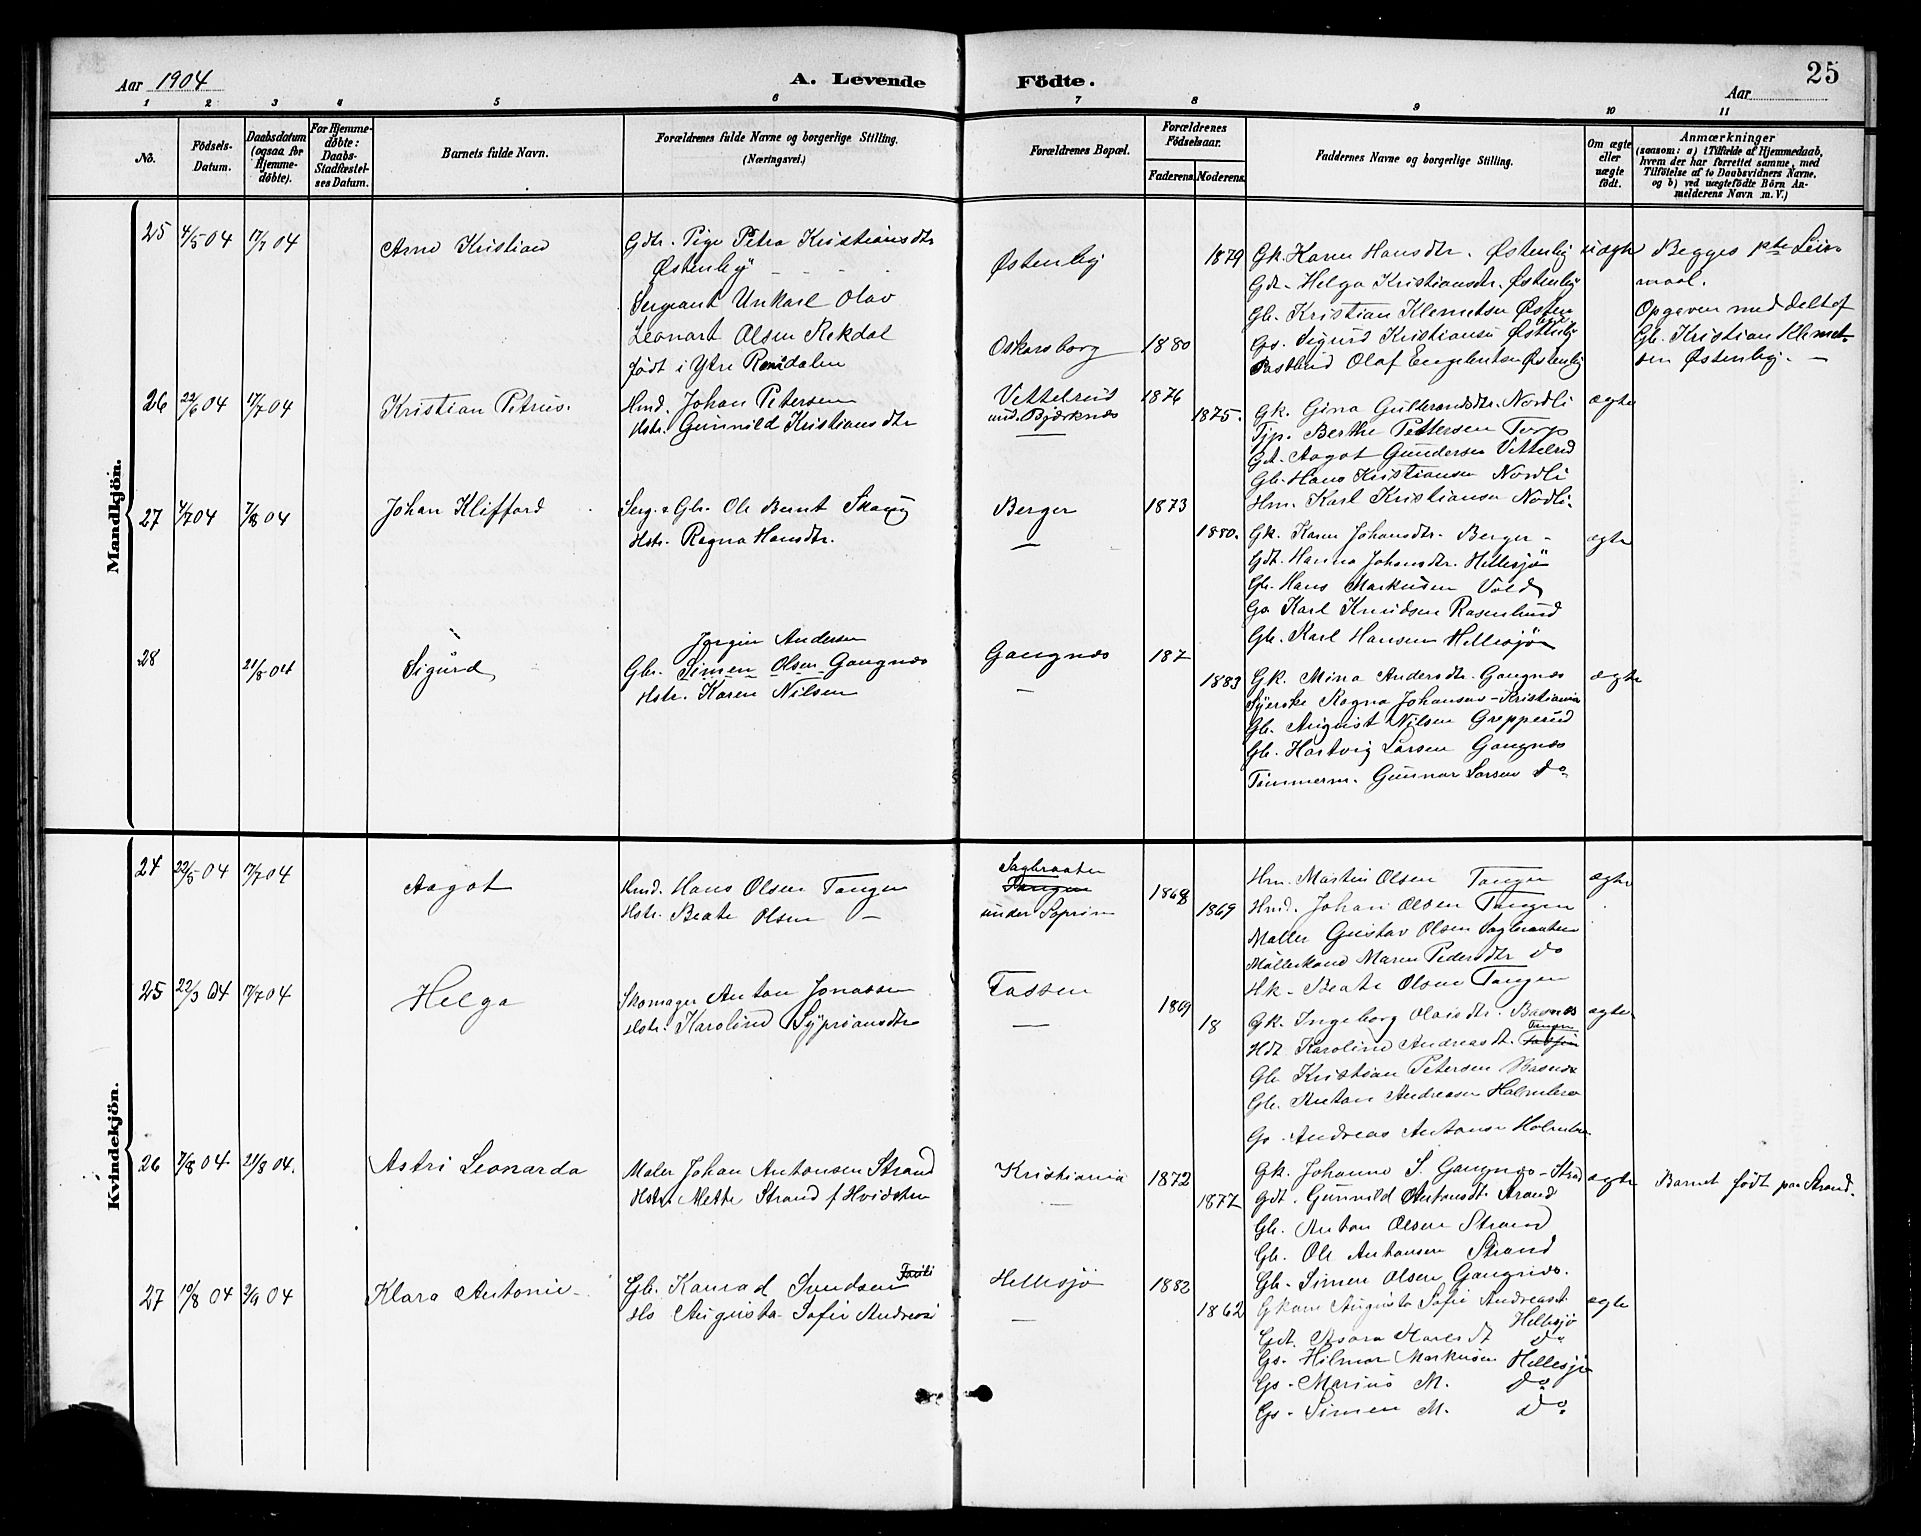 25
Aar 1904
A. Levende Födte.
Aar
1 2 3 4 5 6 7 8 9 10 11
No.
Födsels-
Datum.
Daabsdatum
(ogsaa for
Hjemme-
döbte).
For Hjemme-
döbte:
Daabs-
Stadfæstel-
ses Datum.
Barnets fulde Navn.
Forældrenes fulde Navne og borgerlige Stilling.
(Næringsvei.)
Forældrenes Bopæl.
Forældrenes
Födselsaar.
Faderens.
Moderens.
Faddernes Navne og borgerlige Stilling.
Om ægte
eller
uægte
födt.
Anmærkninger
(saasom: a) i Tilfælde af Hjemmedaab,
hvem der har forrettet samme, med
Tilföielse af to Daabsvidners Navne,
og b) ved uægtefödte Börn An-
melderens Navn m. V.)
Mandkjön.
25 4/5 04 17/7 04 Arne Kristian
Gdtr. Pige Petra Kristiansdtr
Østenby
Sergeant Unkarl Olav
Leonart Olsen Rekdal
født i Ytre Romsdalen
Østenby 1879
Oskarsborg 1880
Gk. Karen Hansdtr. Østenby
Gdt. Helga Kristiansdtr. Østenby
Gb. Kristian Klemetsen Østenby
Gs. Sigurd Kristiansen Østenby
Olaf Engebretsen Østenby
uægte
Begges 1ste Leier-
maal.
Opgaven meddelt af
Gb. Kristian Klemet-
sen Østenby. -
26 22/6 04 17/7 04 Kristian Petrus.
Hmd. Johan Petersen
Hstr. Gunnild Kristiansdtr
Vettelrud 1876
und. Bjørknes 1875.
Gk. Gina Gulbrandsdtr. Nordli
Tjp. Berthe Pettersen Torp
Gdt. Aagot Gundersen Vettelrud
Gb. Hans Kristiansen Nordli
Hm. Karl Kristiansen Nordli.
ægte
27 4/7 04 7/8 04 Johan Klifford
Serg. & Gbr. Ole Bernt Skaug
Hstr. Ragna Hansdtr.
Berger 1873
1880.
Gk. Karen Johansdtr. Berger -
Gdt. Hanna Johansdtr. Hellesjö
Gb. Hans Markusen Vold
Gs Karl Knudsen Rosenlund
Gb. Karl Hansen Hellesjö
ægte
28 21/8 04 Sigurd
Jørgen Andersen
Gbr. Simen Olsen Gangnæs
Hstr. Karen Nilsen
Gangnæs 187
1883
Gk. Mina Andersdtr. Gangnæs
Syerske Ragna Johansen - Kristiania
Gb. August Nilsen Grepperud
Gb. Hartvig Larsen Gangnæs
Tømmerm. Gunnar Larsen do
ægte
Kvindekjön.
24 22/5 04 17/7 04 Aagot
Hmd. Hans Olsen Tangen
Hstr. Beate Olsen -
Sagbraaten
Tangen
under Soprim
1868
1869
Hm. Martin Olsen Tangen
Hmd. Johan Olsen Tangen
Møller Gustav Olsen Sagbraaten
Møllerkone Maren Pedersdtr do
Hk - Beate Olsen Tangen
ægte
25 22/3 04 17/7 04 Helga
Skomager Anton Jonassen
Hstr. Karoline Sypriansdtr
Tossen 1869
18
Gk. Ingeborg Olaisdtr. Basnæs
Hdt Karoline Andreasdt. Tangen
Gb Kristian Petersen Basnæs
Gb. Anton Andreasen Holmbro
Gs. Andreas Antonsen Holmbro
ægte
26 7/8 04 21/8 04. Astri Leonarda
Maler Johan Antonsen Strand
Hstr. Mette Strand f Hvidsten
Kristiania 1872
1877
Gk. Johanne S. Gangnæs - Strand
Gdt. Gunnild Antonsdt. Strand
Gb. Anton Olsen Strand
Gb. Ole Antonsen Strand
Gb. Simen Olsen Gangnæs.
ægte
Barnet født paa Strand.
27 19/8 04 2/9 04 Klara Antonie
Gb. Konrad Svendsen
Hs Augusta Sofie Andreas
Hellesjø 1882
1862
Gkone Augusta Sofie Andreasdt.
Hellesjø
Gdt. do
Gs. Hilmar Markusen Hellesjø
Gs - Marius M. do
Gs - Simen M. do
ægte